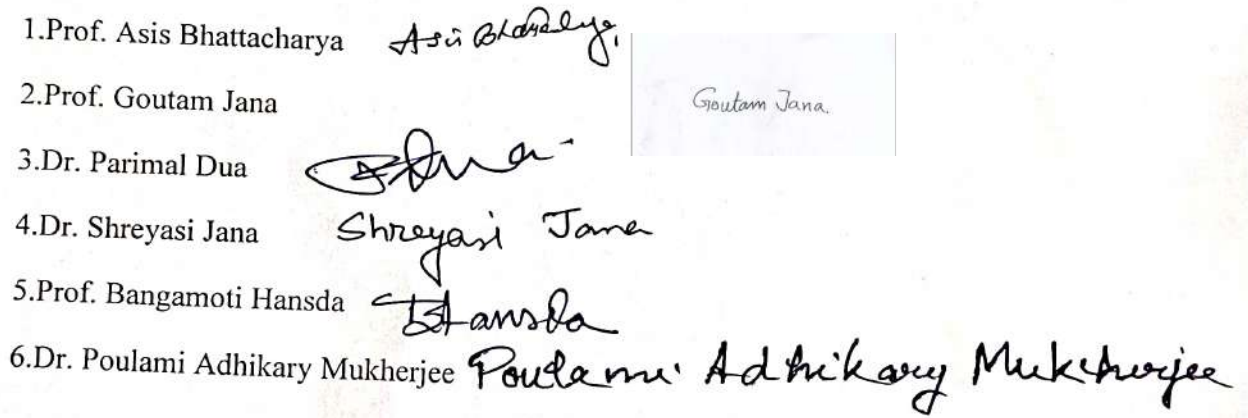 1.Prof. Asis Bhattacharya Asis Bhattacharya
2.Prof. Goutam Jana Goutam Jana.
3.Dr. Parimal Dua
4.Dr. Shreyasi Jana Shreyasi Jana
5.Prof. Bangamoti Hansda BHansda
6.Dr. Poulami Adhikary Mukherjee Poulami Adhikary Mukherjee